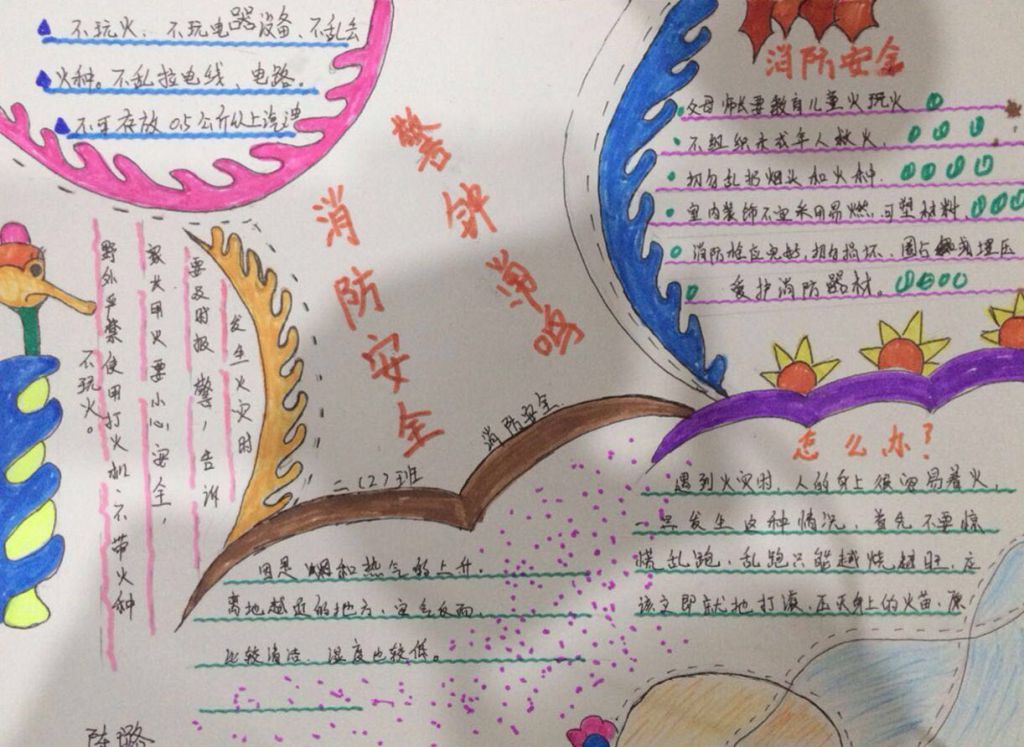 不玩火、不玩电器设备、不乱丢
火种。不乱拉电线、电路.
不可存放0.5公斤以上汽油
警钟常鸣
消防安全
消防安全
父母师长要教育儿童火玩火
不组织未成年人救火.
切勿乱扔烟头和火种.
室内装饰不宜采用易燃.可塑材料.
消防栓应完好,切勿损坏、圈占或埋压
爱护消防器材。
发生火灾时
要及时报警,告诉
家长用火要小心安全,
野外严禁使用打火机、不带火种
不玩火。
二(2)班
消防安全
因是烟和热气的上升.
离地越近的地方、空气反而.
比较清洁、温度也较低。
怎么办?
遇到火灾时、人的身上很容易着火,
一旦发生这种情况、首先不要惊
慌乱跑、乱跑只能越烧越旺、应
该立即就地打滚、压灭身上的火苗、
陈璐